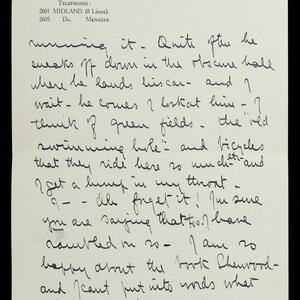 TELEPHONES:
2601 MIDLAND (8 Lines).
2605 Do. MANAGER.
running it - Quite often he
sneaks off down in the obscure hall
where he lands his car - and I
wait - he comes I look at him - I
think of green fields - the "old
swimming hole" - and bicycles
that they ride here so much - etc - and
I get a lump in my throat -
I - - Oh forget it! I'm sure
you are saying that too. I have
rambled on so - I am so
happy about the book Sherwood -
and I can't put into words what